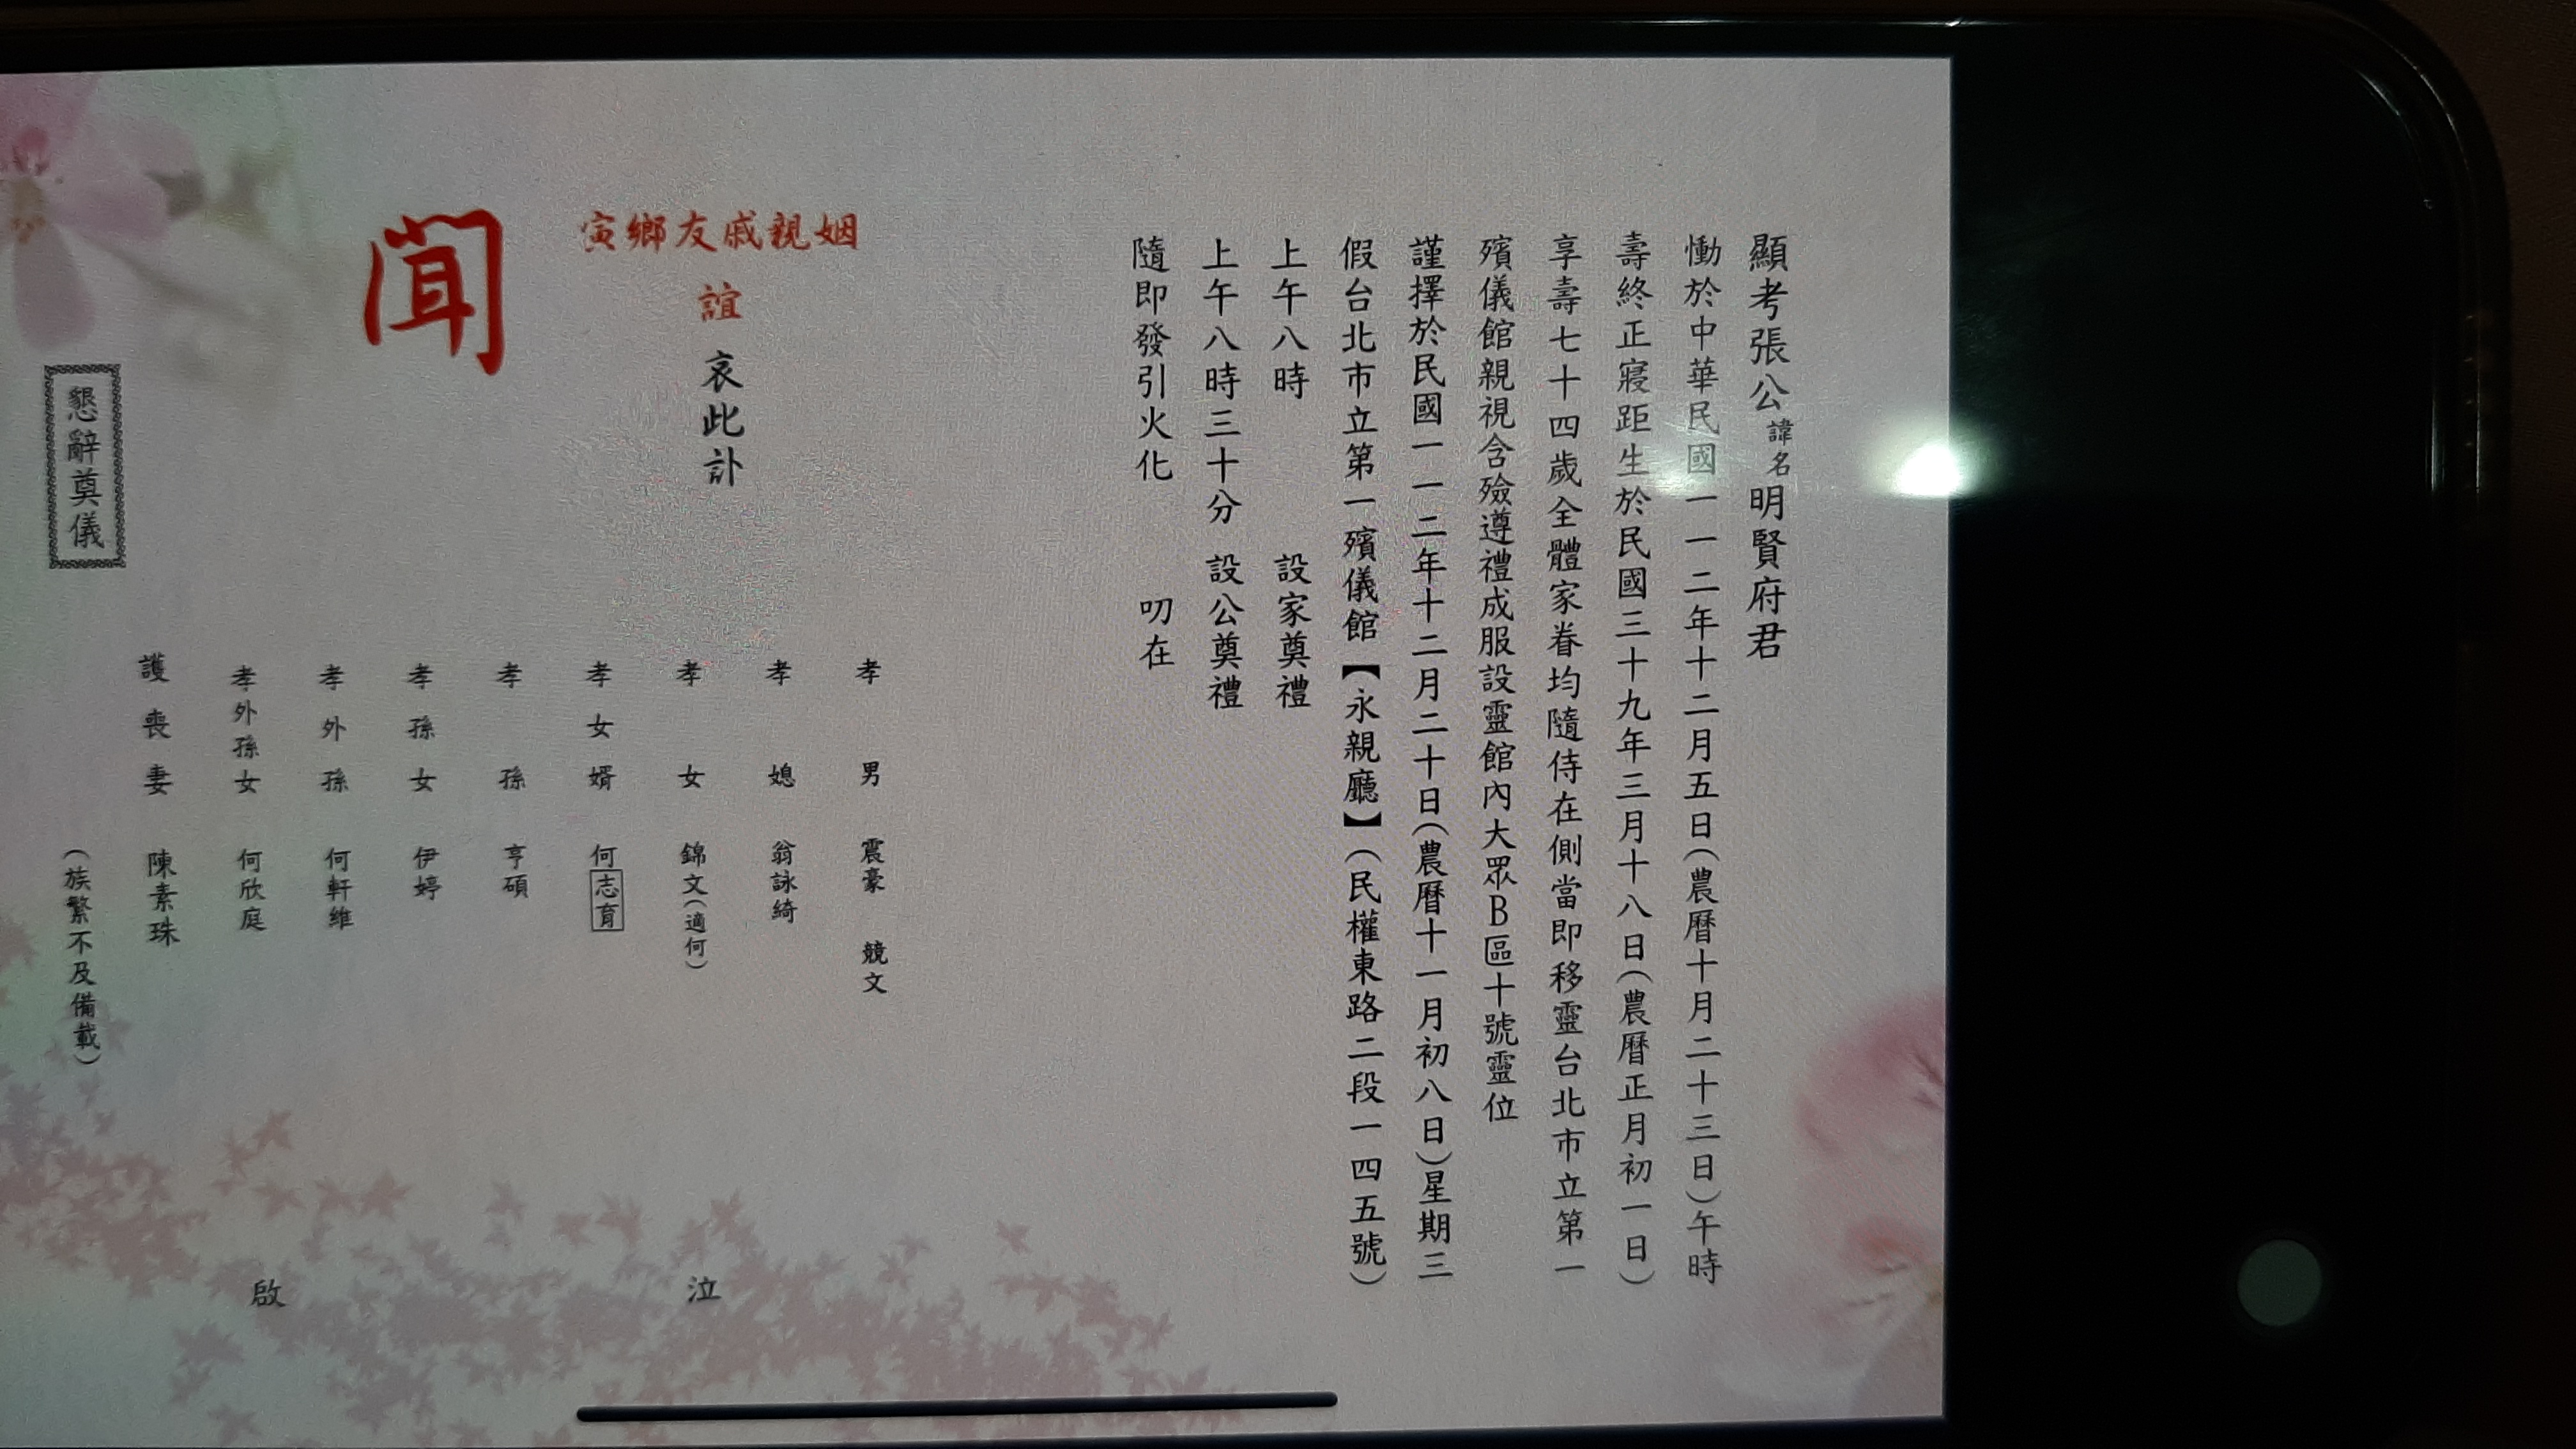 顯考張公諱名明賢府君
慟於中華民國一一二年十二月五日(農曆十月二十三日)午時
壽終正寢距生於民國三十九年三月十八日(農曆正月初一日)
享壽七十四歲全體家眷均隨侍在側當即移靈台北市立第一
殯儀館親視含殮遵禮成服設靈館內大眾B區十號靈位
謹擇於民國一一二年十二月二十日(農曆十一月初八日)星期三
假台北市立第一殯儀館【永親廳】(民權東路二段一四五號)
上午八時 設家奠禮
上午八時三十分 設公奠禮
隨即發引火化 叨在
姻親戚友鄉寅
誼 哀此訃
聞
孝男 震豪 競文
孝媳 翁詠綺
孝女 錦文(適何)
孝女婿 何志育
孝孫 亨碩
孝孫女 伊婷
孝外孫 何軒維
孝外孫女 何欣庭
護喪妻 陳素珠
(族繁不及備載)
泣
啟
懇辭奠儀